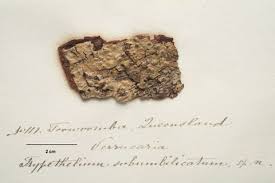 No 111. Toowoomba, Queensland
2 cm
Verrucaria
Trypethelium subumbilicatum, sp. n.